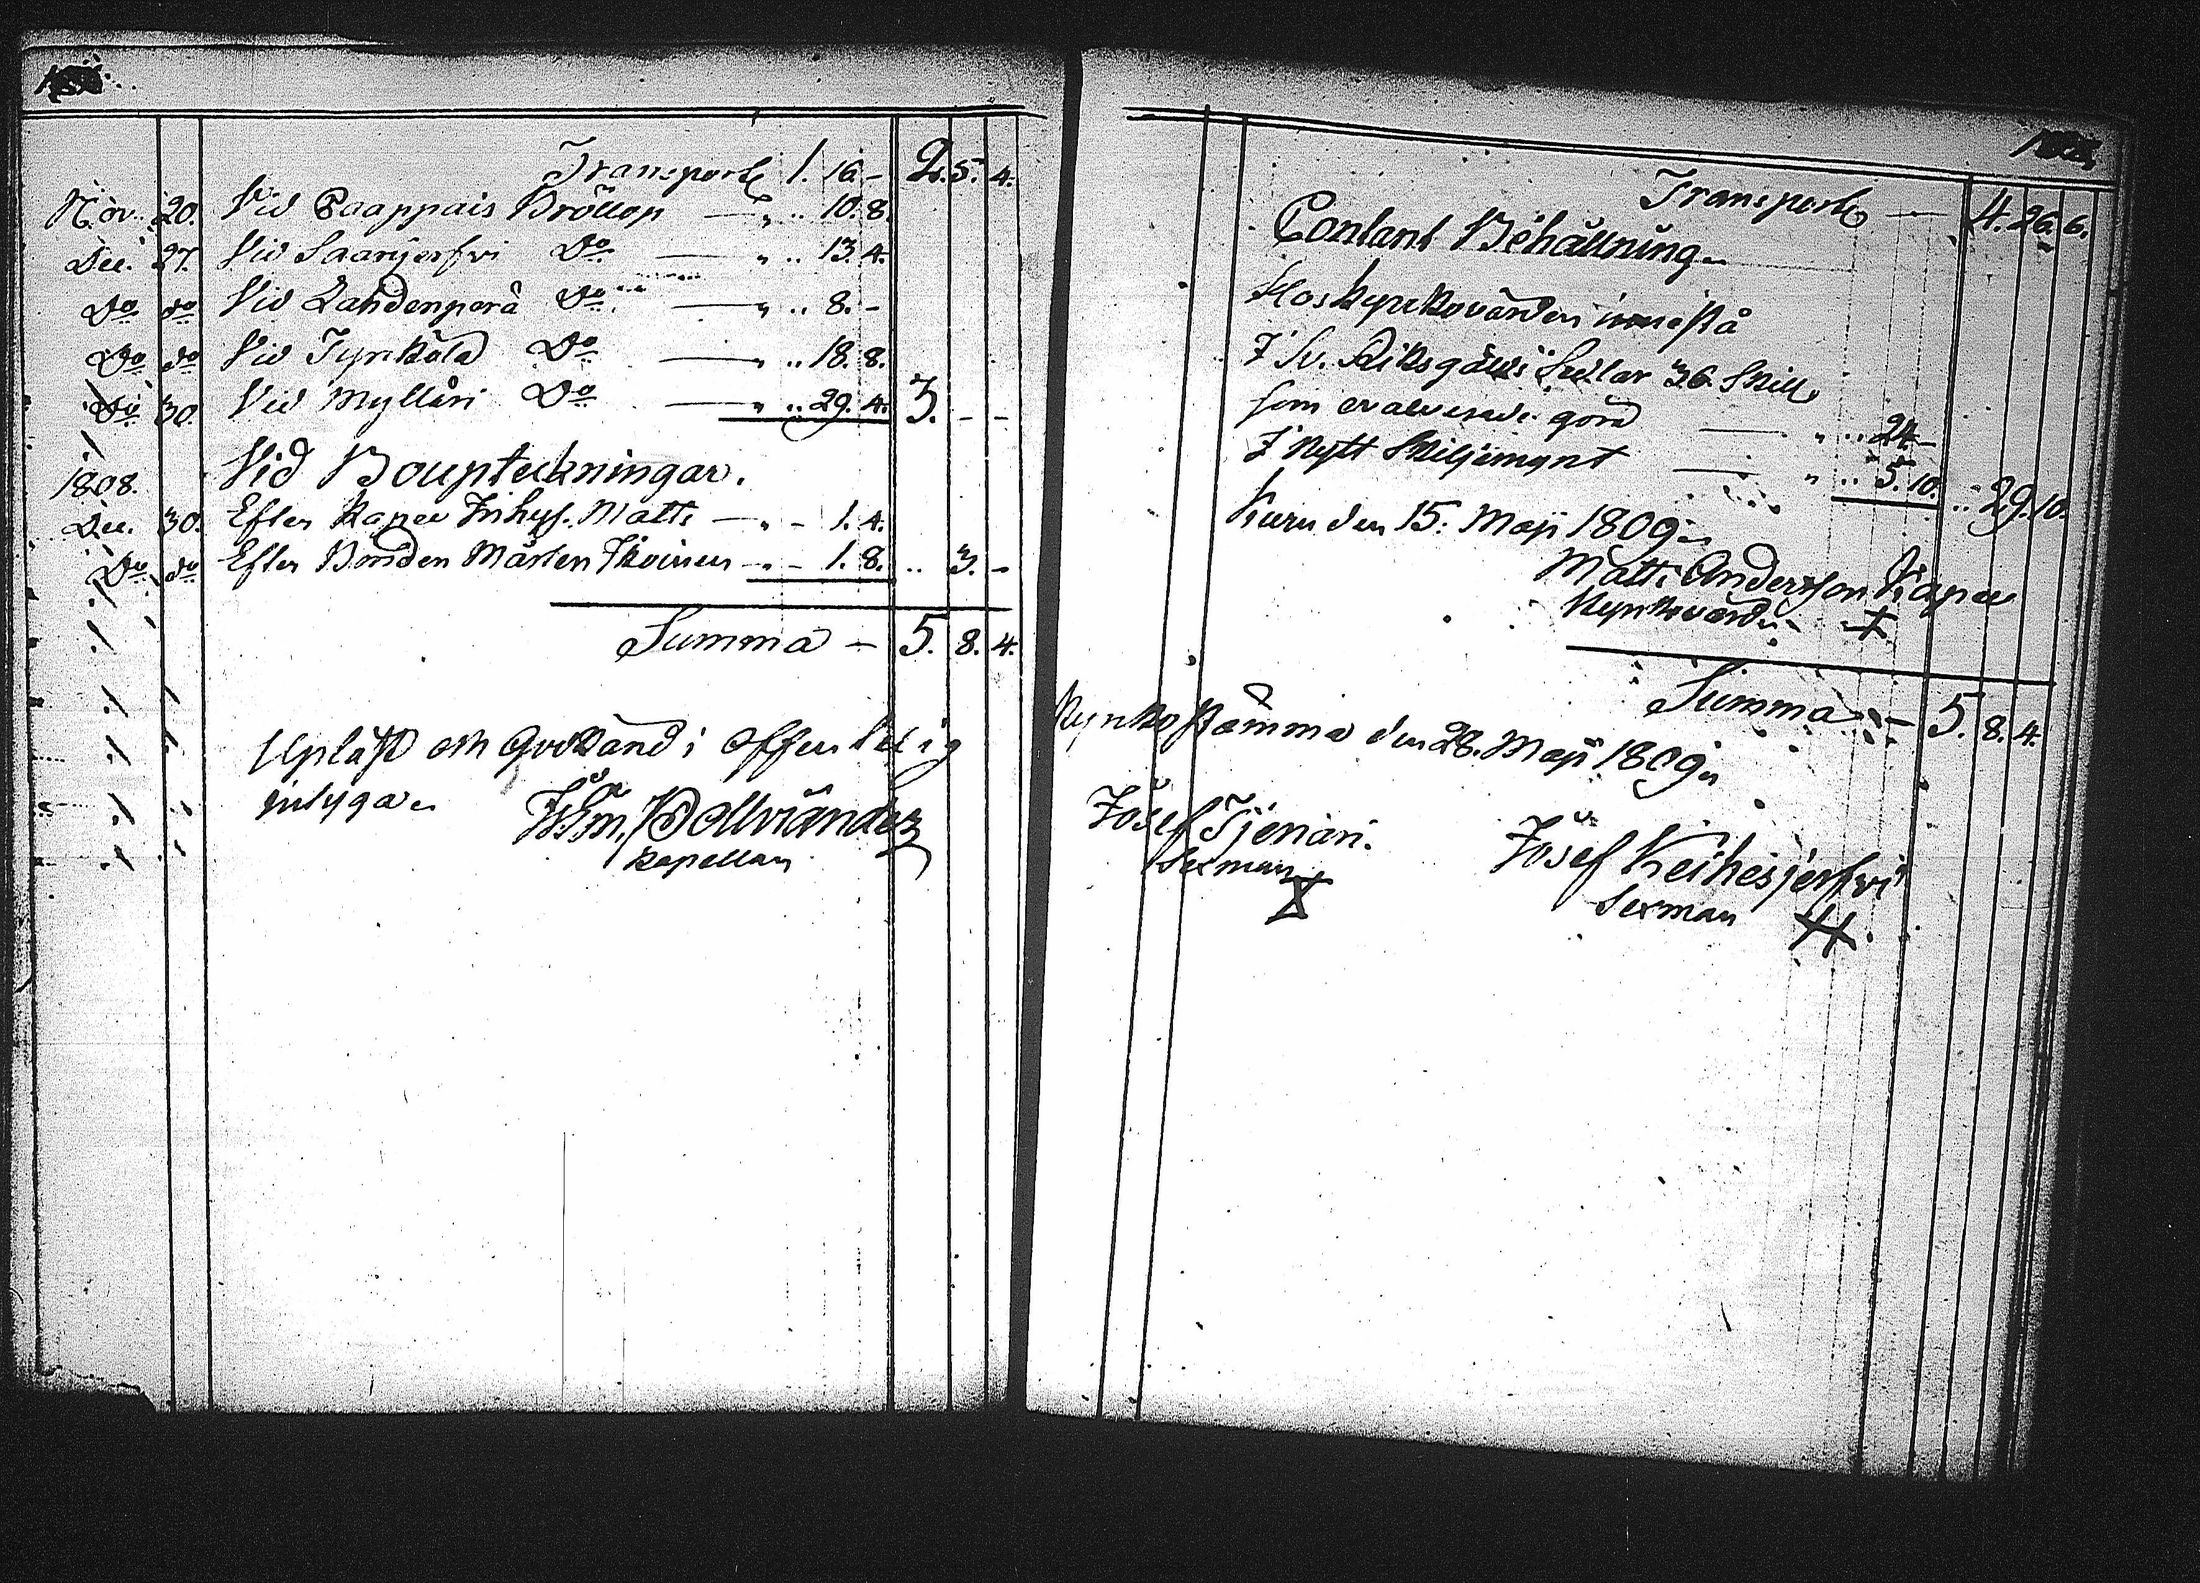 Transport 1. 16 - 2. 5. 4.
Nov. 20. Vid Paappais Bröllop — " .. 10. 8.
Dec. 27. Vid Saarijerfvi Do — " .. 13. 4.
Do do Vid Lahdenperä Do — " .. 8. -
Do do Vid Tyrkölä Do — " .. 18. 8.
Do 30. Vid Mylläri Do — " .. 29. 4. 3. - -
Vid Bouptekningar.
1808.
Dec. 30. Efter Kapee Inhys. Matts — " - 1. 4.
Do do Efter Bonden Mårten Ikoinen - " - 1. 8. .. 3. -
Summa — 5. 8. 4.
Upläst och Godkänd i offentelig
intygar
Kollviander
Kapellan
Transport — 4. 26. 6.
Contant Behållning
Hos Kyrkovärden innestå
I Sv. Riksgälds Sedlar 36 Skill.
som utgöra — " .. 24 -
I Nytt Skiljemynt — " .. 5. 10. .. 29. 10.
den 15. Maji 1809.
Matts Andersson Kapee
Kyrkovärd
Summa — 5. 8. 4.
Kyrkostämma den 28. Maji 1809
Josef Tjenari.
Sexman
Josef Keihesjerfvi
Sexman